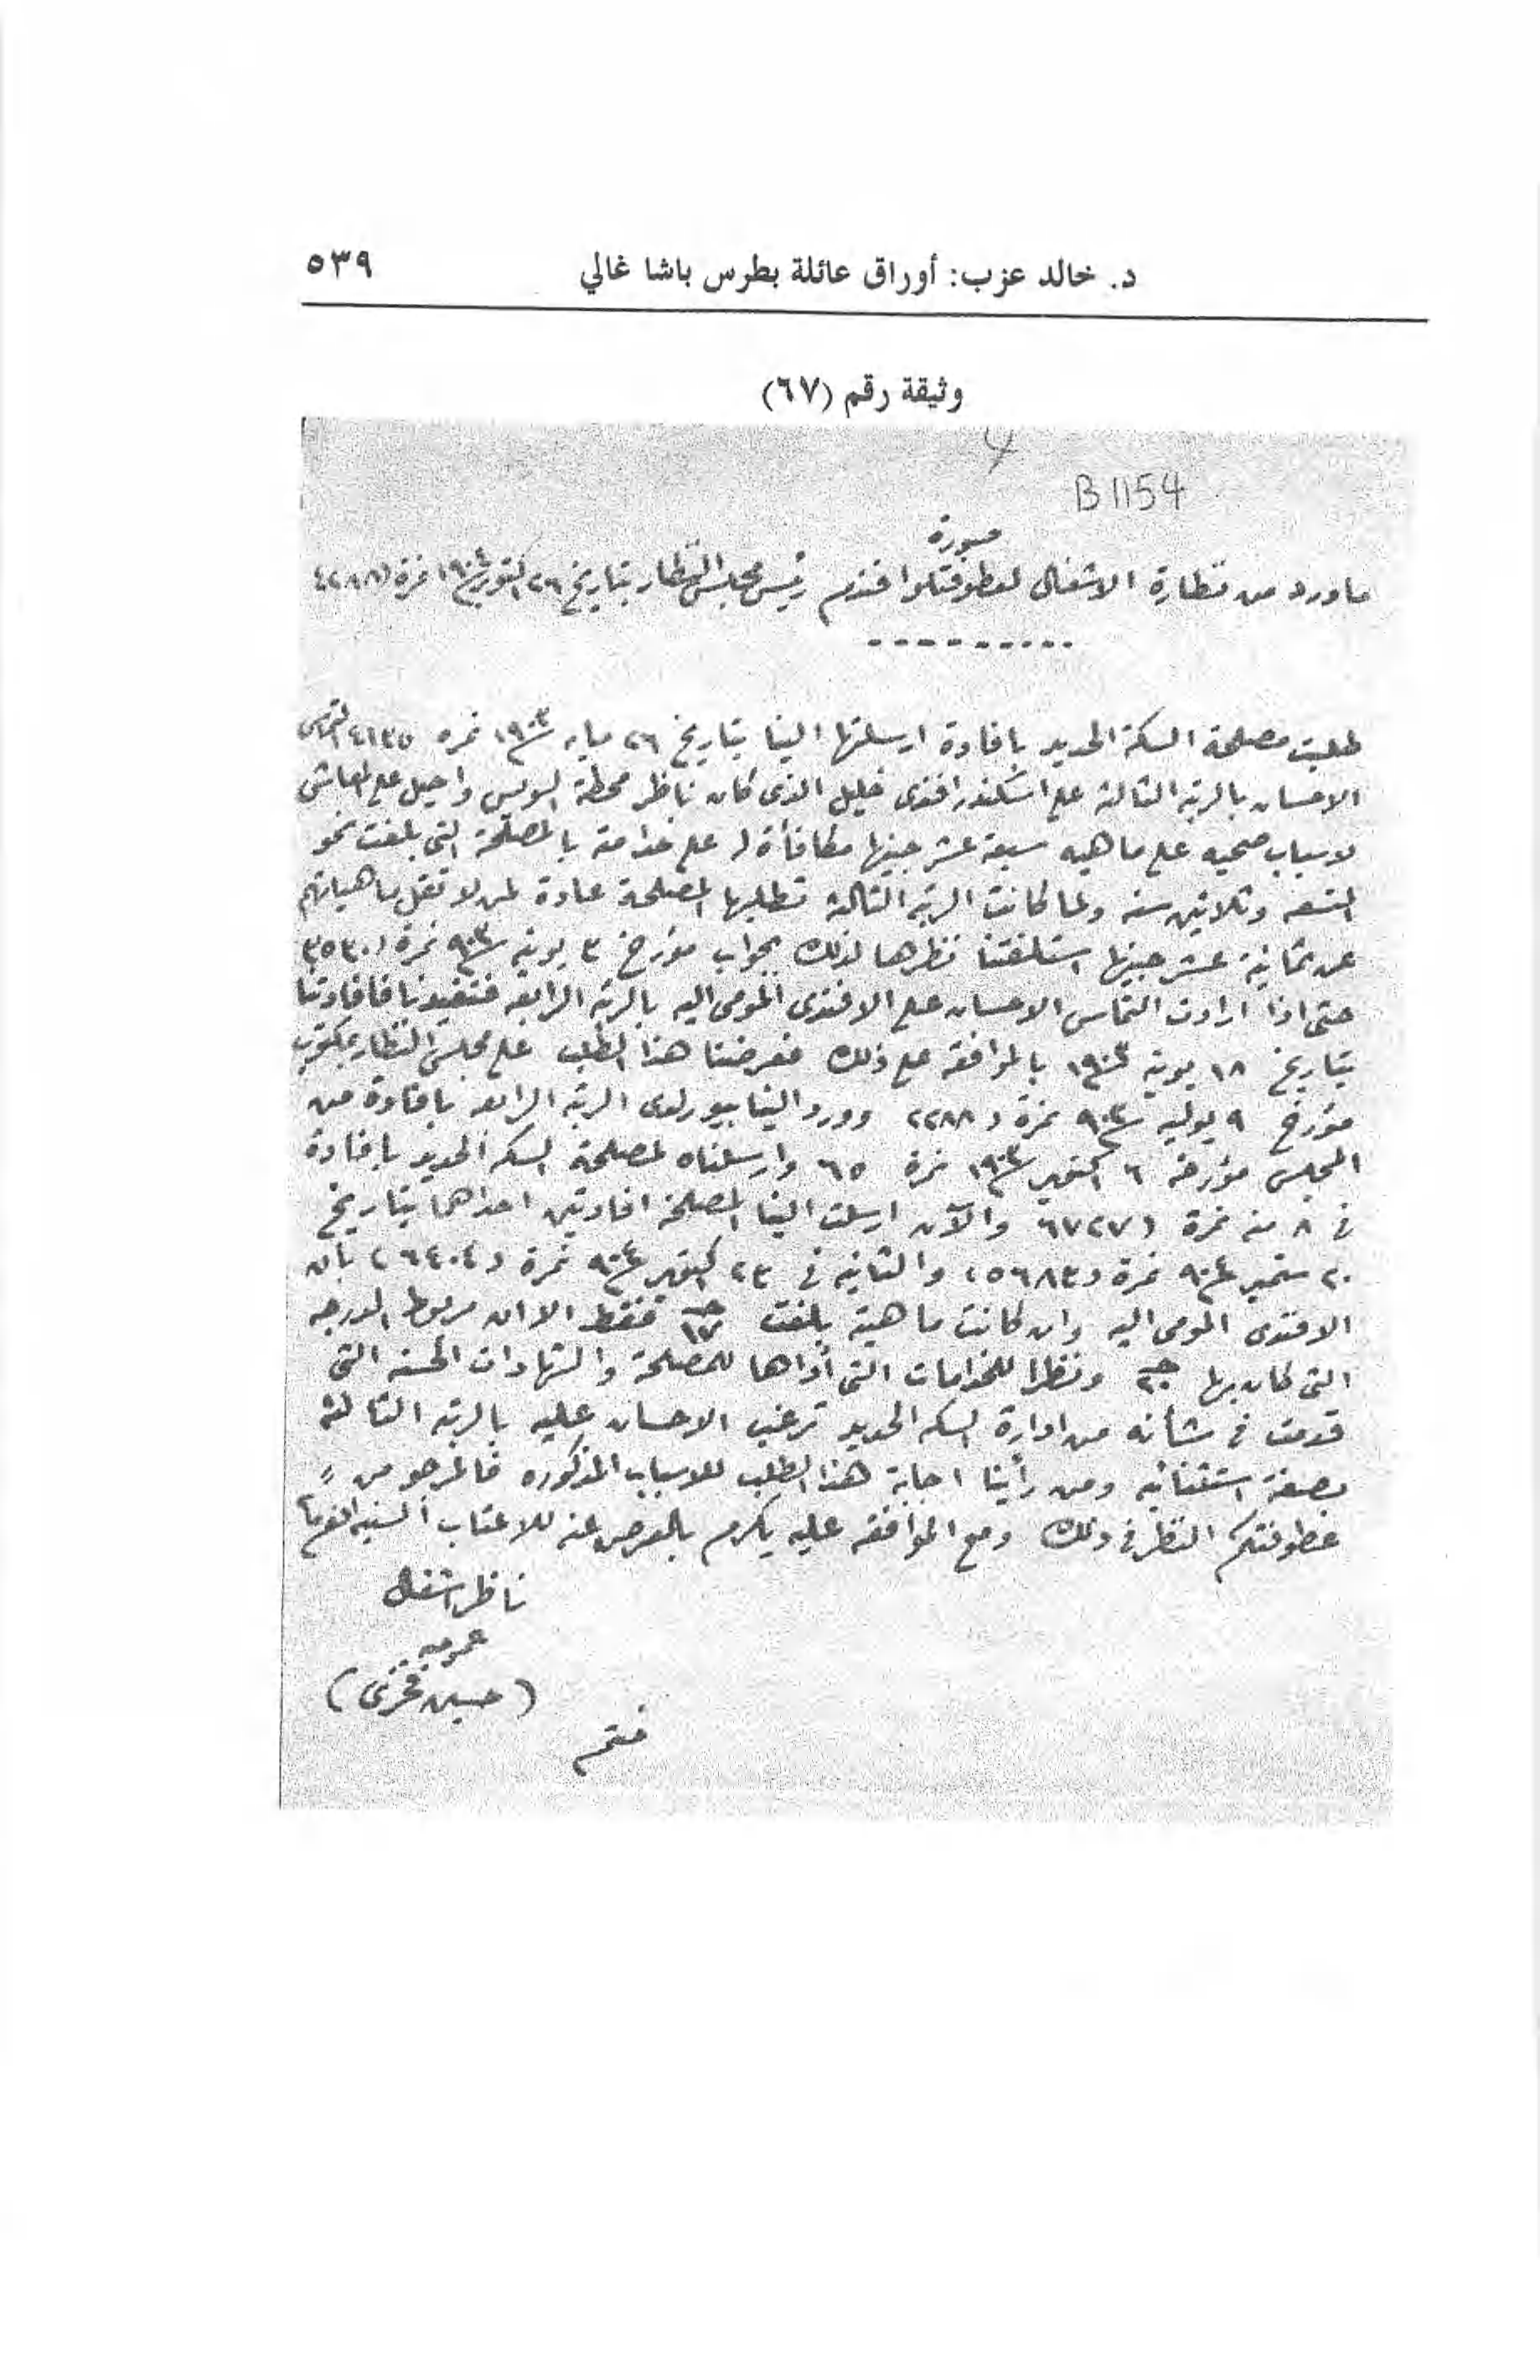 د. خالد عزب: أوراق عائلة بطرس باشا غالي
٥٣٩
وثيقة رقم (٦٧)
B 1154
صورة
ما ورد من نظارة الاشغال لعطوفتلو افندم رئيس مجلس النظار بتاريخ ٢٦ اكتوبر ١٩٠٤ نمرة
طلبت مصلحة السكة الحديد بافادة ارسلتها الينا بتاريخ ٢٦ مايه سنة ١٩٠٣ نمره ٤١٣٥ التماس
الاحسان بالرتبه الثالثة على اسكندر افندى خليل الذى كان ناظر محطة السويس واحيل على المعاش
لاسباب صحيه على ماهيه سبعة عشر جنيها مكافأة له على خدامته بالمصلحة التى بلغت نحو
التسعه وثلاثين سنه ولما كانت الرتبه الثالثة تطلبها المصلحة عادة لمن لا تقل ماهياتهم
عن ثمانية عشر جنيها استلفتنا نظرها لذلك بجواب مؤرخ ٣ يونيه سنة ٩٠٣ نمرة (٣٥٣٠
حتى اذا ارادت التماس الاحسان على الافندى المومى اليه بالرتبه الرابعه فتفيدنا فافادتنا
بتاريخ ١٨ يونيه سنة ١٩٠٣ بالموافقه على ذلك فعرضنا هذا الطلب على مجلس النظار بمكتوب
مؤرخ ٩ يوليه سنة ٩٠٣ نمرة (٢٢٨٨ وورد الينا بيورلدى الرتبه الرابعه بافادة من
المجلس مؤرخه ٦ اكتوبر سنة ١٩٠٣ نمرة ٦٥ وارسلناه لمصلحة السكه الحديد بافادة
فى ٨ منه نمرة (٦٧٢٧ والآن ارسلت الينا المصلحة افادتين احداهما بتاريخ
٢٠ ستمبر سنة ٩٠٤ نمرة (٥٦٨٣) والثانيه فى ٢٣ اكتوبر سنة ٩٠٤ نمرة (٦٤٠٤) بأن
الافندى المومى اليه وان كانت ماهيته بلغت ١٧ جـ فقط الا ان مربوط الدرجه
التى كان بها جـ ونظرا للخدامات التى أداها للمصلحة والشهادات الحسنه التى
قدمت فى شأنه من ادارة السكه الحديد ترغب الاحسان عليه بالرتبه الثالثة
بصفة استثنائيه ومن رأينا اجابة هذا الطلب للاسباب المذكوره فالمرجو من
عطوفتكم النظر فى ذلك ومع الموافقه عليه يكرم بالعرض عنه للاعتاب السنيه افندم
ناظر اشغال
عموميه
(حسين فخرى)
ختم